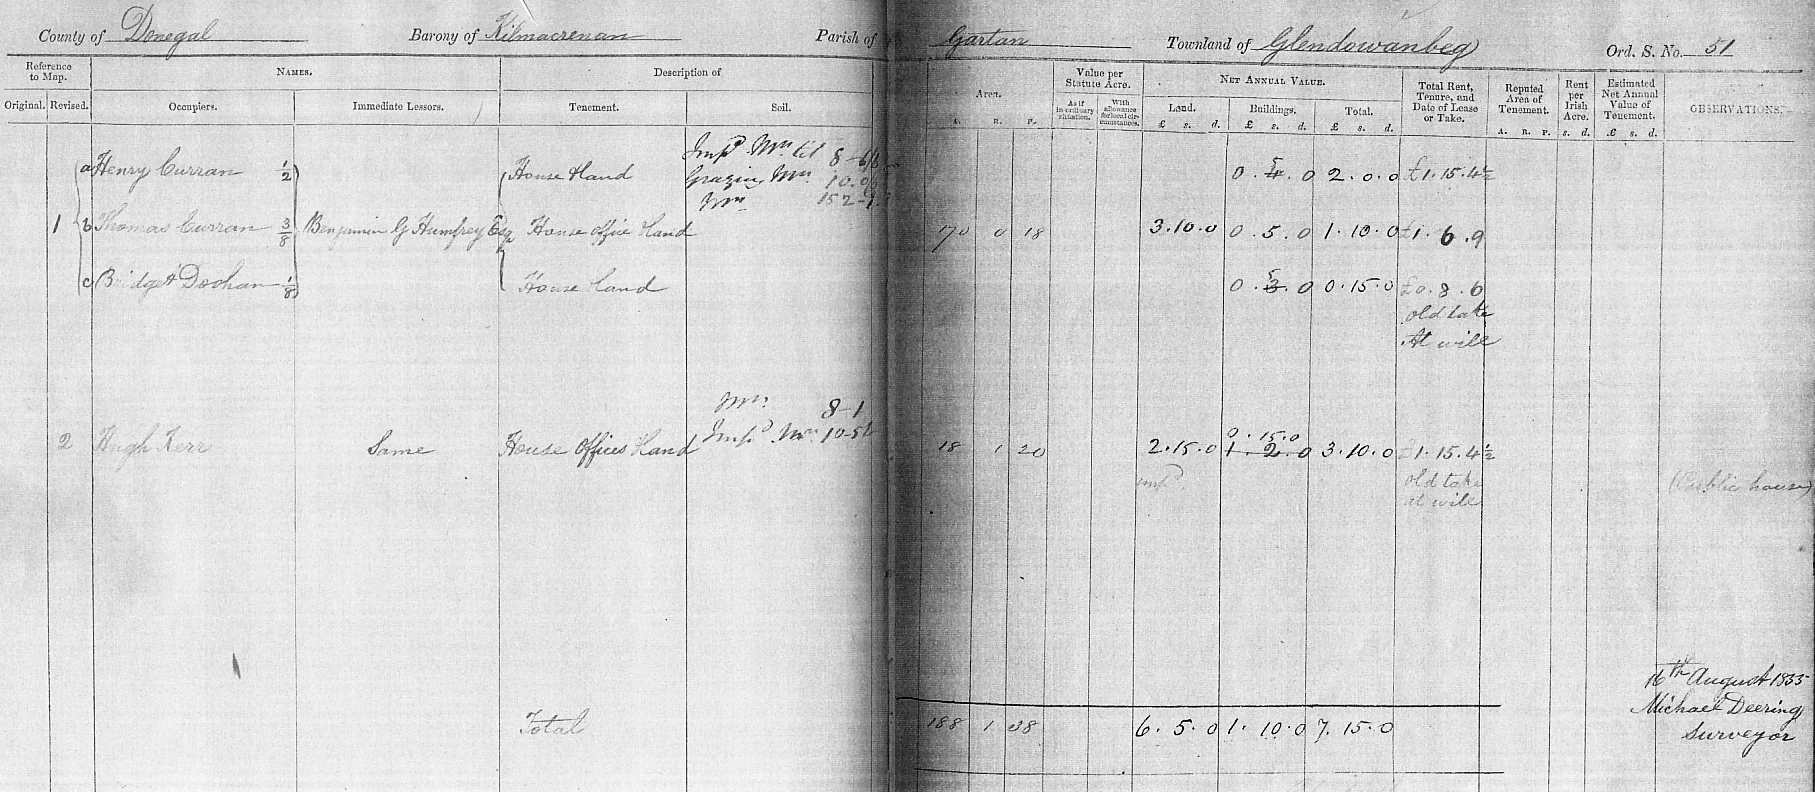 County of Donegal Barony of Kilmacrenan Parish of Gartan Townland of Glendowanbeg Ord. S. No. 51
Reference to Map. NAMES. Description of Area. Value per Statute Acre. NET ANNUAL VALUE. Total Rent, Tenure, and Date of Lease or Take. Reputed Area of Tenement. Rent per Irish Acre. Estimated Net Annual Value of Tenement. OBSERVATIONS.
Original. Revised. Occupiers. Immediate Lessors. Tenement. Soil. As if in ordinary situation. With allowance for local circumstances. Land. Buildings. Total.
A. R. P. £ s. d. £ s. d. £ s. d. A. R. P. s. d. £ s. d.
Imp.d Mn. til 8-6/6
a Henry Curran 1/2 House & land Grazing Mn. 10.0 0. 5 4. 0 2. 0. 0 £1. 15. 4 1/2
Mn. 152-1
1 b Thomas Curran 3/8 Benjamin G Humfrey Esq House office & land 170 0 18 3. 10. 0 0. 5. 0 1. 10. 0 £1. 6. 9
c Bridget Doohan 1/8 House land 0. 5 3. 0 0. 15. 0 £0. 8. 6
old take
At will
Mn. 8-1
2 Hugh Kerr Same House Offices & land Imp.d Mn. 10-5 18 1 20 2. 15. 0 0. 15. 0 1. 2. 0 3. 10. 0 £1. 15. 4 1/2
imp.d old take (Public house)
at will
16th August 1855
Michael Deering
Surveyor
Total 188 1 38 6. 5. 0 1. 10. 0 7. 15. 0